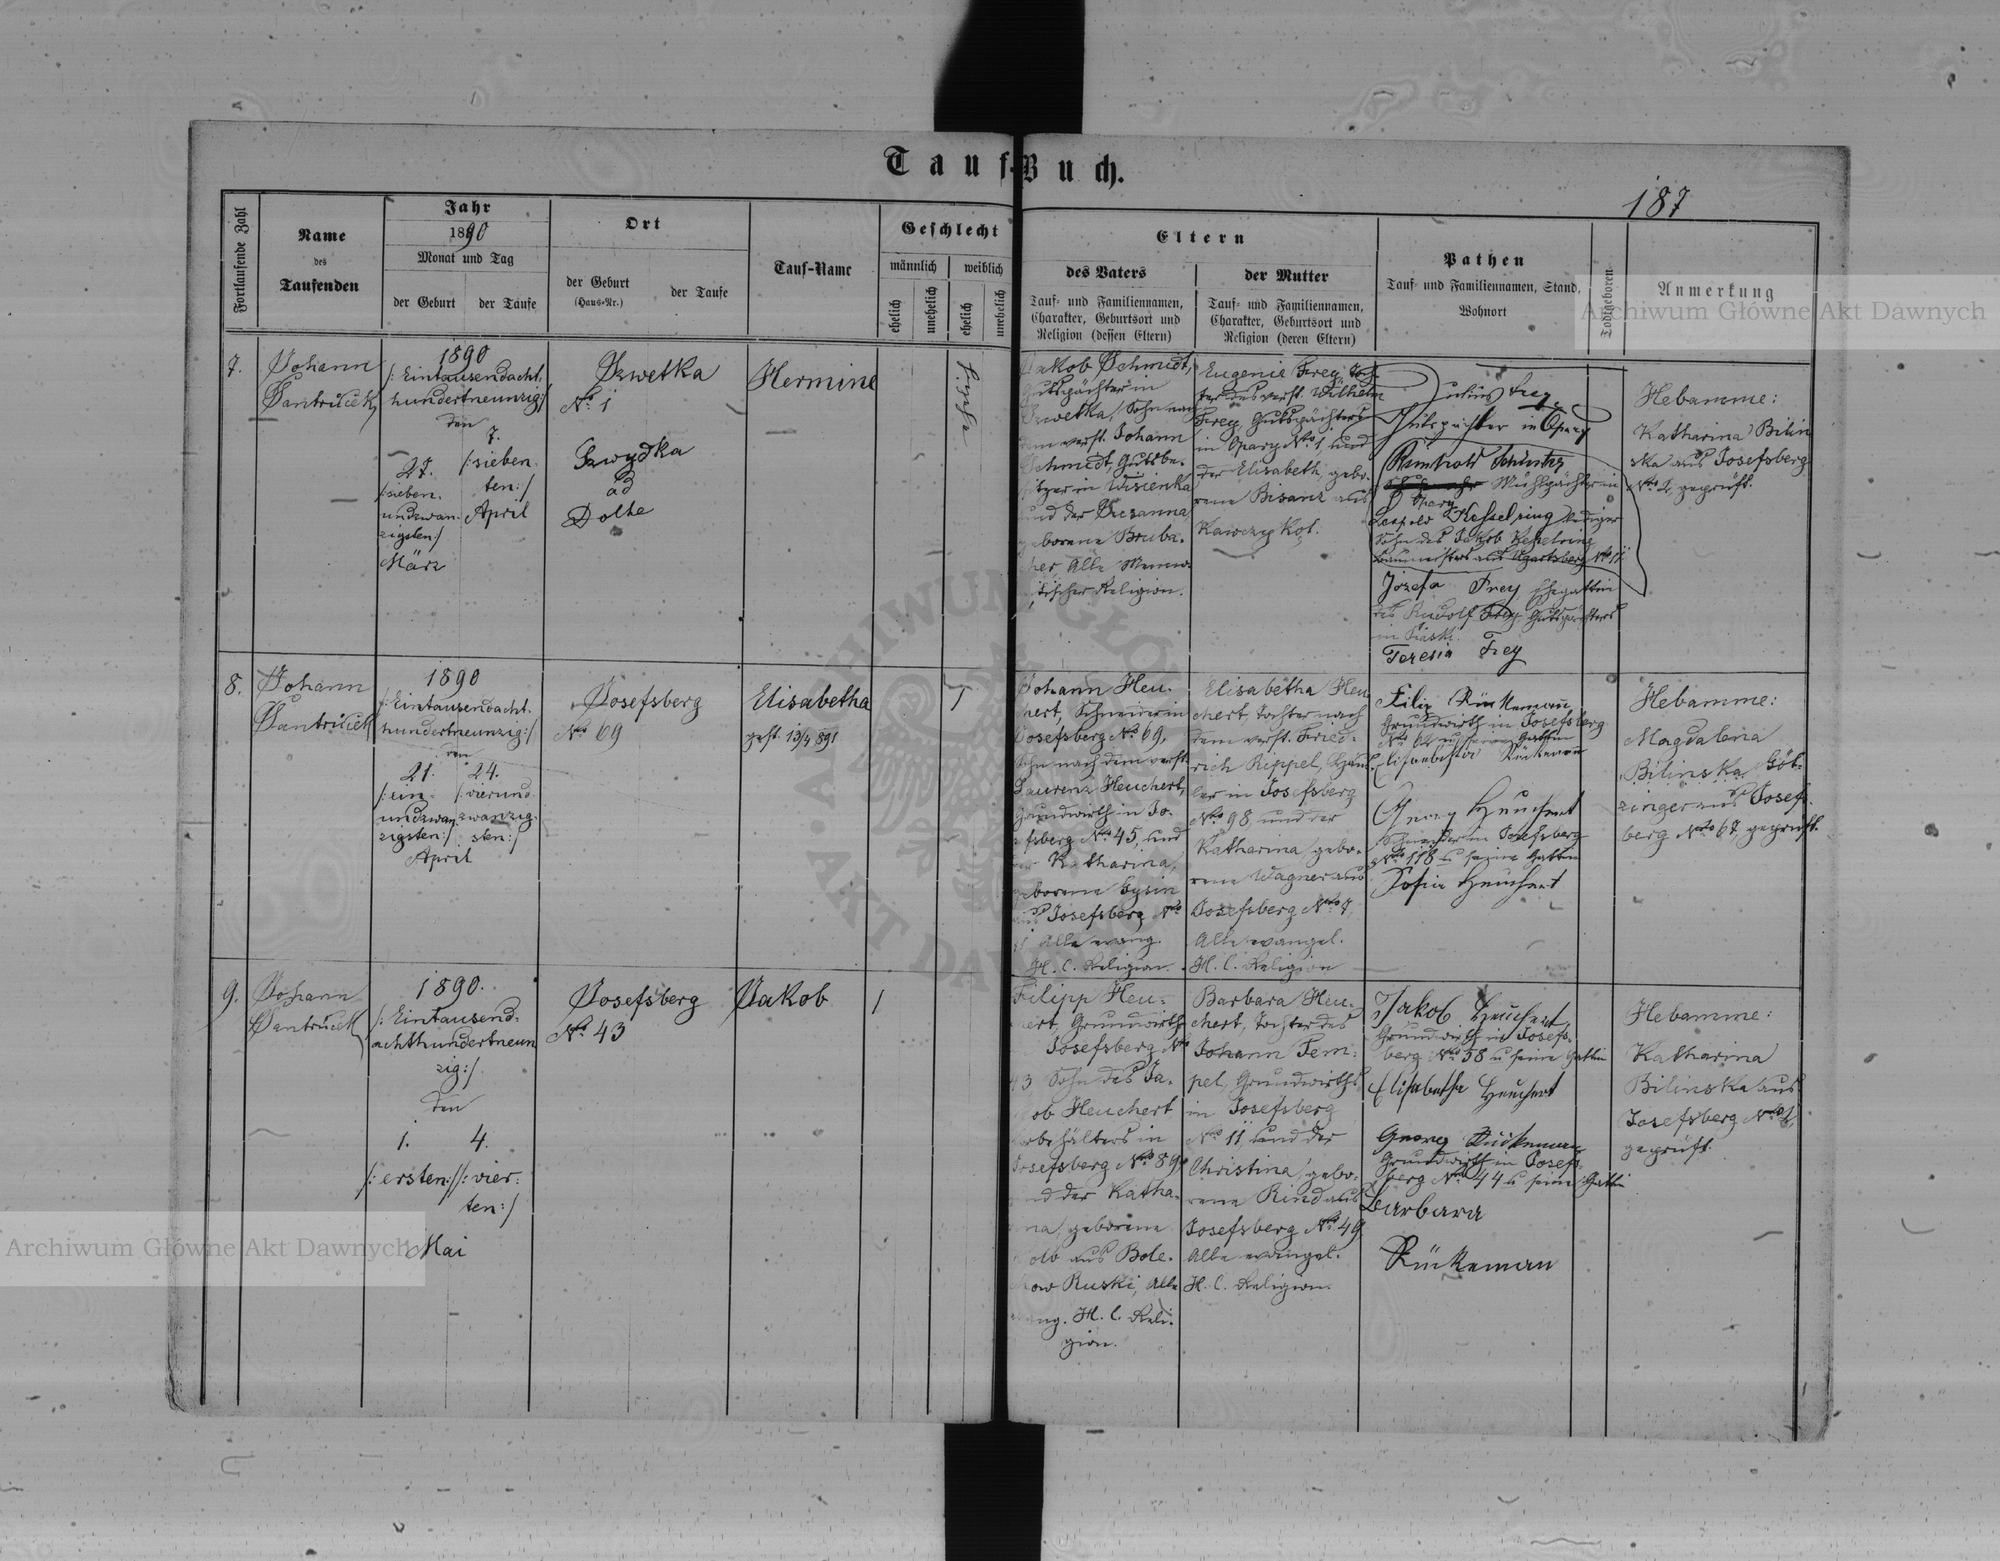 Tauf-Buch.
187
Fortlaufende Zahl
Name
des
Taufenden
Jahr
1890
Monat und Tag
der Geburt
der Taufe
Ort
der Geburt
(Haus-Nr.)
der Taufe
Tauf-Name
Geschlecht
männlich
weiblich
ehelich
unehelich
ehelich
unehelich
Eltern
des Vaters
Tauf- und Familiennamen,
Charakter, Geburtsort und
Religion (dessen Eltern)
der Mutter
Tauf- und Familiennamen,
Charakter, Geburtsort und
Religion (deren Eltern)
Pathen
Tauf- und Familiennamen, Stand,
Wohnort
Todtgeboren
Anmerkung
7.
Johann
Jantrucek
1890
/: Eintausendacht-
hundertneunzig:/
den
27.
/:sieben-
undzwan-
zigsten:/
März
7.
/:sieben-
ten:/
April
No. 1
ad
Dolhe
Hermine
Jakob Schmidt,
Gutspächter in
Sohn nach
dem verst. Johann
Schmidt, Gutsbe-
sitzer in Wiscenka
und der Susanna
geborene Bruba-
cher, Alle Menno-
nitischer Religion.
Eugenie Frey, Toch-
ter des verst. Wilhelm
Frey, Gutspächters
in Opary No. 1, und
der Elisabeth gebo-
rene Bisanz aus
Julius Frey
Gutspächter in Opary
Mühlpächter in
Opary
Leopold Kesselring lediger
Sohn des Jakob Kesselring
Baumeisters aus Ugartsberg No. 11
Jozefa Frey, Ehegattin
des Rudolf Frey Gutspächters
in
Teresia Frey
Hebamme:
Katharina Bilin-
ska aus Josefsberg
geprüft.
8.
Johann
Jantrucek
1890
/: Eintausendacht-
hundertneunzig:/
den
21.
/:ein-
undzwan-
zigsten:/
24.
/:vierund-
zwanzig-
sten:/
April
Josefsberg
No. 69
Elisabetha
gest. 13/4 891
1
Johann Heu-
chert, Schneider in
Josefsberg No. 69,
Sohn nach dem verst.
Laurenz Heuchert,
Grundwirth in Jo-
sefsberg No. 45, und
der Katharina,
geborene Gysin
aus Josefsberg No
Alle evang.
H. C. Religion.
Elisabetha Heu-
chert, Tochter nach
dem verst. Fried-
rich Rippel,
in Josefsberg
No. 98, und der
Katharina, gebo-
rene Wagner aus
Josefsberg No. 7,
Alle evangel.
H. C. Religion
Filip Rükeman
Grundwirth in Josefsberg
No. 62 u seine Gattin
Elisabetha Rükeman
Georg Heuchert
Schneider in Josefsberg
No. 118 u seine Gattin
Sofia Heuchert
Hebamme:
Magdalena
Bilinska, Göt-
zinger aus Josefs-
berg No. 67, geprüft.
9.
Johann
Jantrucek
1890.
/: Eintausend-
achthundertneun-
zig:/
den
1.
/:ersten:/
4.
/:vier-
ten:/
Mai
Josefsberg
No. 43
Jakob
1
Filipp Heu-
chert, Grundwirth
Josefsberg No
43 Sohn des Ja-
kob Heuchert
in
Josefsberg No. 89,
und der Katha-
rina, geborene
Kolb aus Bole-
chow Ruski, Alle
evang. H. C. Reli-
gion.
Barbara Heu-
chert, Tochter des
Johann Tem-
pel, Grundwirths
in Josefsberg
No. 11, und der
Christina, gebo-
rene Rind aus
Josefsberg No. 49
Alle evangel.
H. C. Religion.
Jakob Heuchert,
Grundwirth in Josefs-
berg No. 58 u seine Gattin
Elisabetha Heuchert
Georg Rükeman
Grundwirth in Josefs-
berg No. 44 u seine Gattin
Barbara
Rükeman
Hebamme:
Katharina
Bilinska aus
Josefsberg
geprüft.
Archiwum Główne Akt Dawnych
Archiwum Główne Akt Dawnych
ARCHIWUM GŁÓWNE AKT DAWNYCH